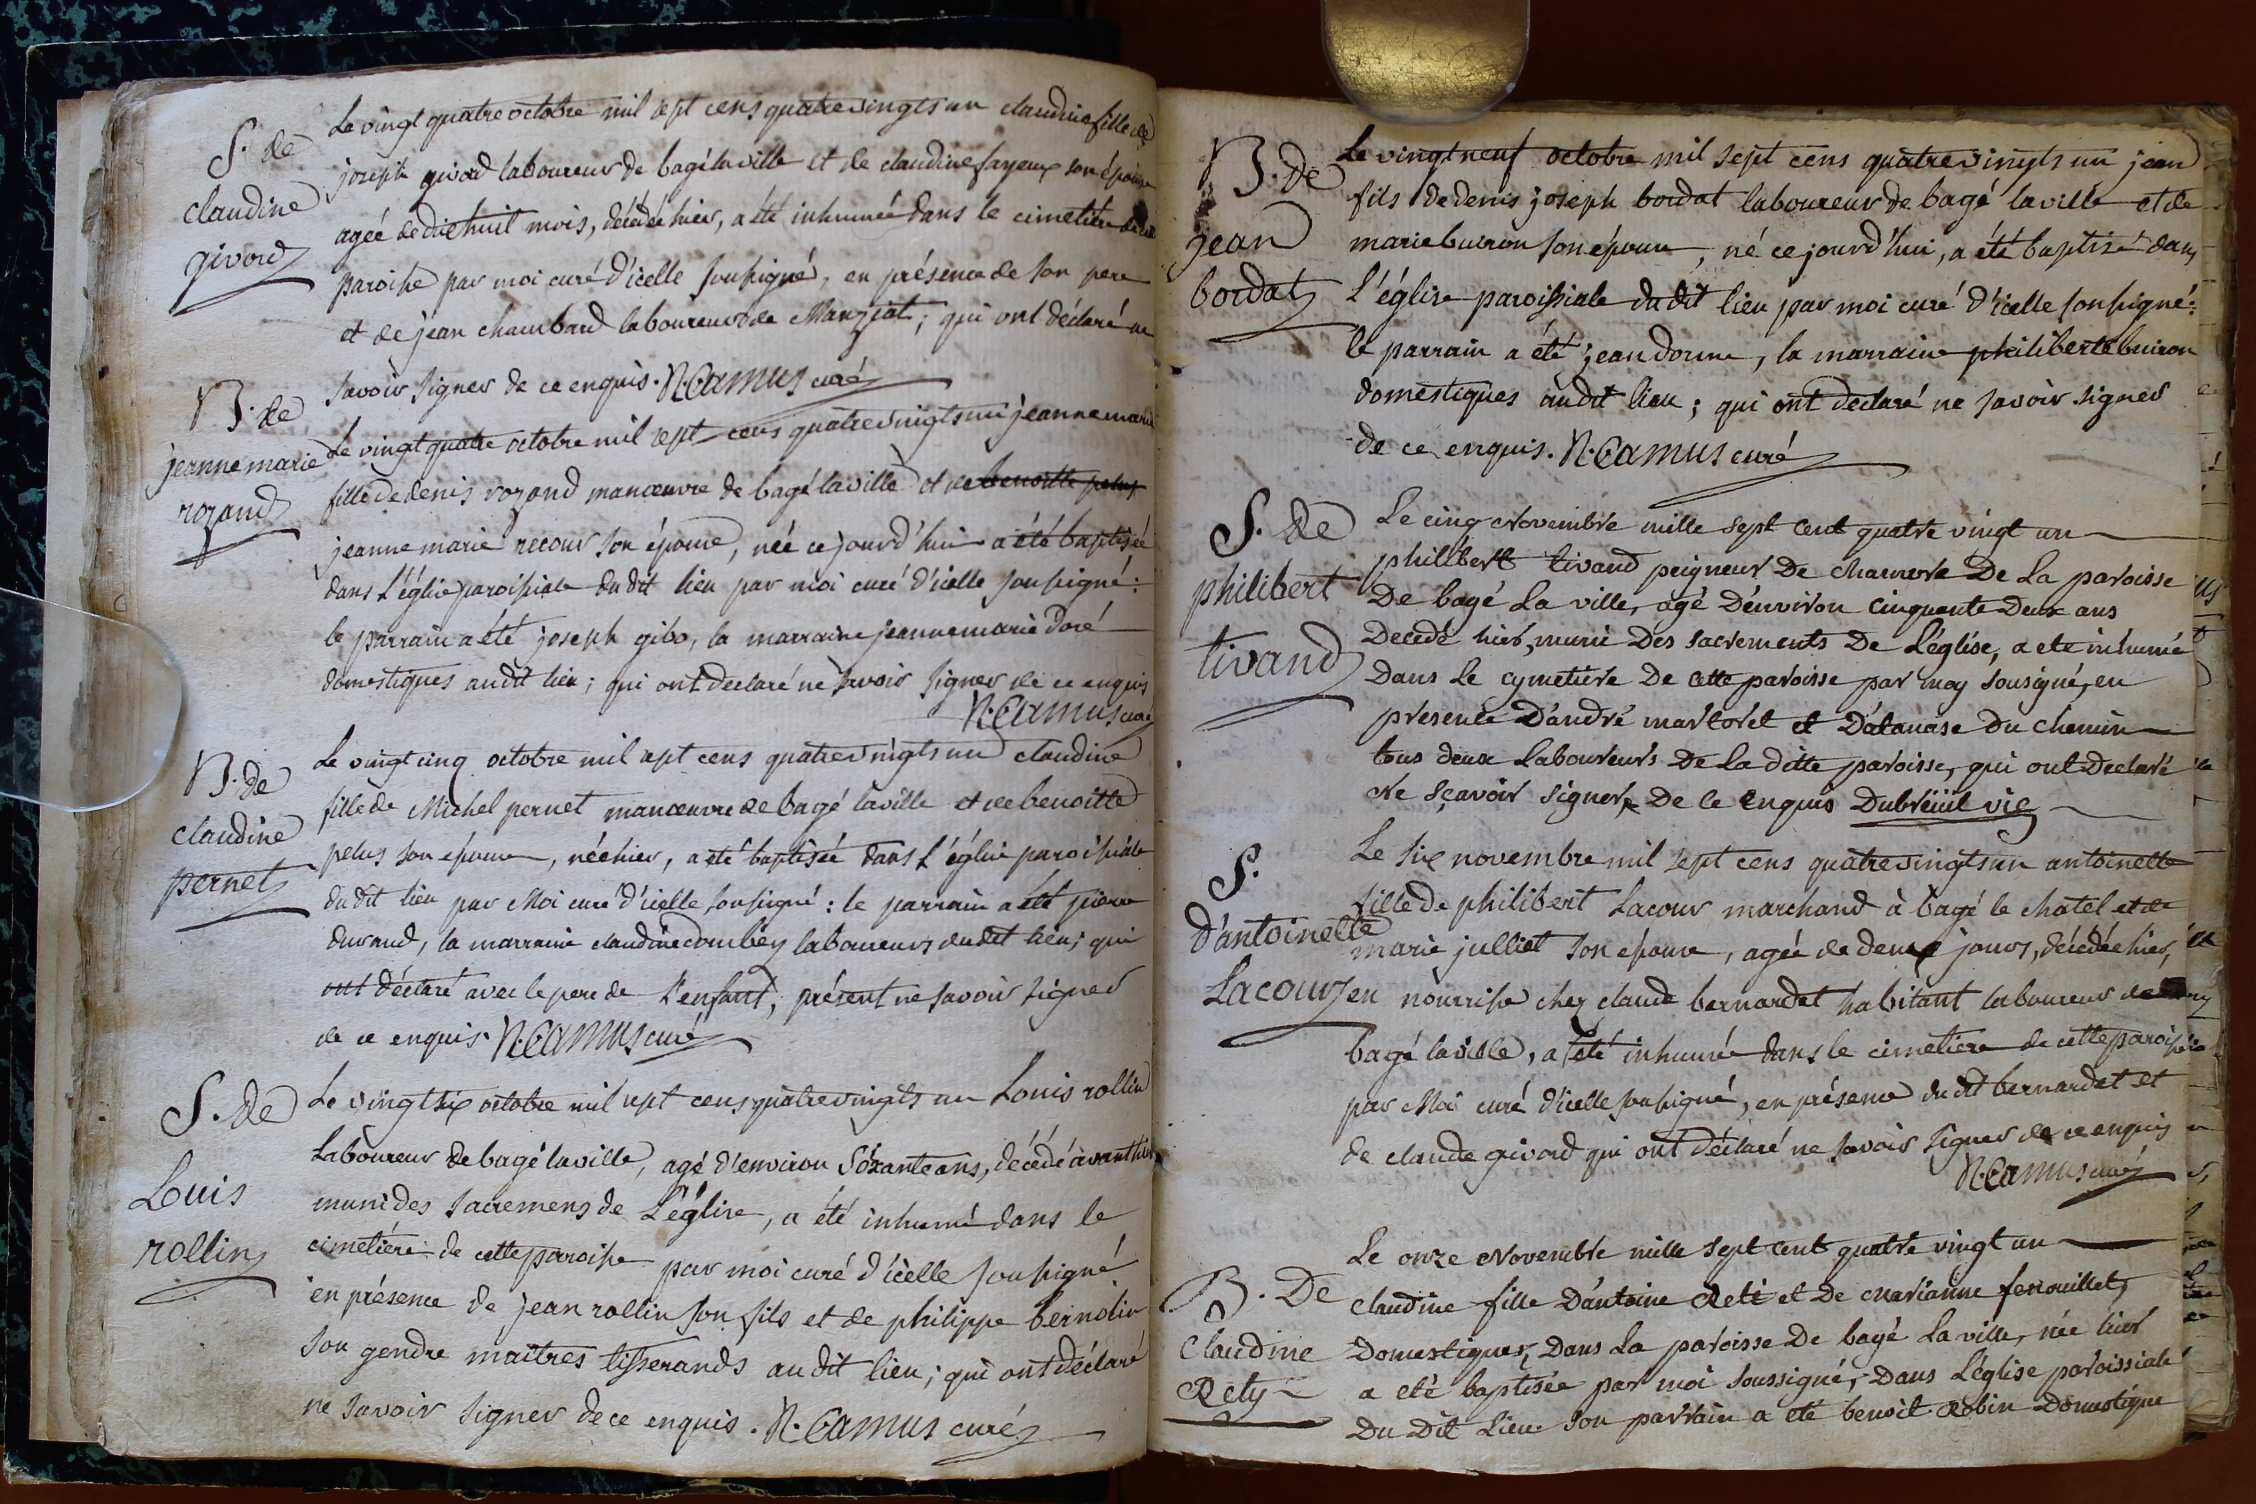 S. de
claudine
givord
Le vingt quatre octobre mil sept cens quatrevingts un claudine fille de
joseph givord laboureur de bagé la ville et de claudine fayeux son épouse
agée de dix huit mois, décédée hier, a été inhumée dans le cimetiere de cette
paroisse par moi curé d'icelle soussigné, en présence de son pere
et de jean chambard laboureur de Manziat; qui ont déclaré ne
savoir signer de ce enquis. N. Camus curé
B. de
jeanne marie
rozand
Le vingt quatre octobre mil sept cens quatrevingts un jeanne marie
fille de denis rozand manœuvre de bagé la ville et de benoitte pelus
jeanne marie recour son épouse, née ce jourd'hui a été baptisée
dans L'église paroissiale du dit lieu par moi curé d'icelle soussigné:
le parrain a été joseph gibo, la marraine jeanne marie doré
domestiques au dit lieu; qui ont declaré ne savoir signer de ce enquis
N. Camus curé
B. de
claudine
pernet
Le vingt cinq octobre mil sept cens quatrevingts un claudine
fille de Michel pernet manœuvre de bagé la ville et de benoitte
pelus son épouse, née hier, a été baptisée dans L'église paroissiale
du dit lieu par Moi curé d'icelle soussigné: le parrain a été pierre
durand, la marraine claudine combey laboureurs du dit lieu; qui
ont déclaré avec le pere de L'enfant, présent ne savoir signer
de ce enquis. N. Camus curé
S. de
Louis
rollin
Le vingt six octobre mil sept cens quatrevingts un Louis rollin
Laboureur de bagé la ville, agé d'environ soixante ans, décédé avant hier
muni des sacremens de L'église, a été inhumé dans le
cimetière de cette paroisse par moi curé d'icelle soussigné
en présence de jean rollin son fils et de philippe bernolin
son gendre maitres tisserands au dit lieu; qui ont déclaré
ne savoir signer de ce enquis. N. Camus curé
B. de
jean
bordat
Le vingt neuf octobre mil sept cens quatrevingts un jean
fils de denis joseph bordat laboureur de bagé la ville et de
marie buiron son épouse, né ce jourd'hui, a été baptisé dans
L'église paroissiale du dit lieu par moi curé d'icelle soussigné:
le parrain a été jean donne, la marraine philiberte buiron
domestiques au dit lieu; qui ont declaré ne savoir signer
de ce enquis. N. Camus curé
S. de
philibert
tivand
Le cinq Novembre mille sept cent quatre vingt un
philibert tivand peigneur De chanvre De La paroisse
De bagé La ville, agé D'environ cinquante Deux ans
Decedé hier, munie Des sacrements De L'église, a ete inhumé
Dans Le cymetiere De cette paroisse par moy sousigné, en
presence D'andré martoret et D'atanase Du chemin
tous deux Laboureurs De La ditte paroisse, qui ont Declaré
Ne sçavoir signer, De ce Enquis Dubreüil vic
S.
D'antoinette
Lacour
Le six novembre mil sept cens quatrevingts un antoinette
fille de philibert Lacour marchand à bagé le chatel et de
marie julliet son épouse, agée de deux jours, décédée hier,
en nourrisse chez claude bernardet habitant laboureur de
bagé la ville, a été inhumée dans le cimetiere de cette paroisse
par Moi curé d'icelle soussigné, en présence du dit bernardet et
de claude givord qui ont déclaré ne savoir signer de ce enquis
N. Camus curé
B. De
Claudine
Rety
Le onze Novembre mille sept cent quatre vingt un
claudine fille D'antoine Reti et De Marianne fenouillet,
Domestiques, Dans La paroisse De bagé La ville, née hier
a eté baptisée par moi soussigné, Dans L'église paroissiale
Du Dit Lieu son parrain a eté benoit Robin Domestique